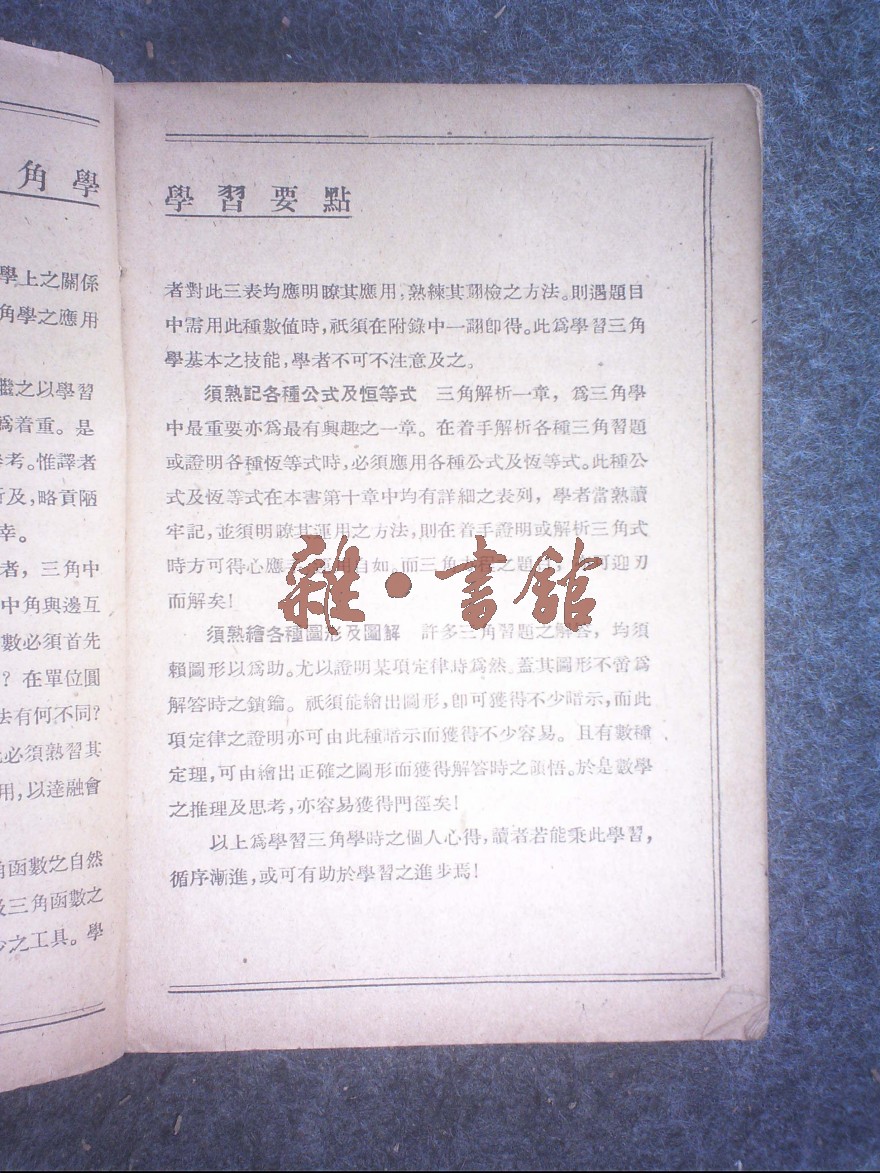 角學
學上之關係
角學之應用
繼之以學習
爲着重。是
參考。惟譯者
所及,略貢陋
幸。
者,三角中
中角與邊互
數必須首先
?在單位圓
法有何不同?
必須熟習其
用,以達融會
角函數之自然
及三角函數之
少之工具。學
學習要點
者對此三表均應明瞭其應用,熟練其翻檢之方法。則遇題目
中需用此種數值時,祇須在附錄中一翻卽得。此爲學習三角
學基本之技能,學者不可不注意及之。
須熟記各種公式及恒等式 三角解析一章,爲三角學
中最重要亦爲最有興趣之一章。在着手解析各種三角習題
或證明各種恆等式時,必須應用各種公式及恆等式。此種公
式及恆等式在本書第十章中均有詳細之表列,學者當熟讀
牢記,並須明瞭其運用之方法,則在着手證明或解析三角式
時方可得心應手 自如。而三角 之題 可迎刃
而解矣!
雜·書館
須熟繪各種圖形及圖解 許多三角習題之解答,均須
賴圖形以爲助。尤以證明某項定律時爲然。蓋其圖形不啻爲
解答時之鎖鑰。祇須能繪出圖形,卽可獲得不少暗示,而此
項定律之證明亦可由此種暗示而獲得不少容易。且有數種
定理,可由繪出正確之圖形而獲得解答時之領悟。於是數學
之推理及思考,亦容易獲得門徑矣!
以上爲學習三角學時之個人心得,讀者若能秉此學習,
循序漸進,或可有助於學習之進步焉!